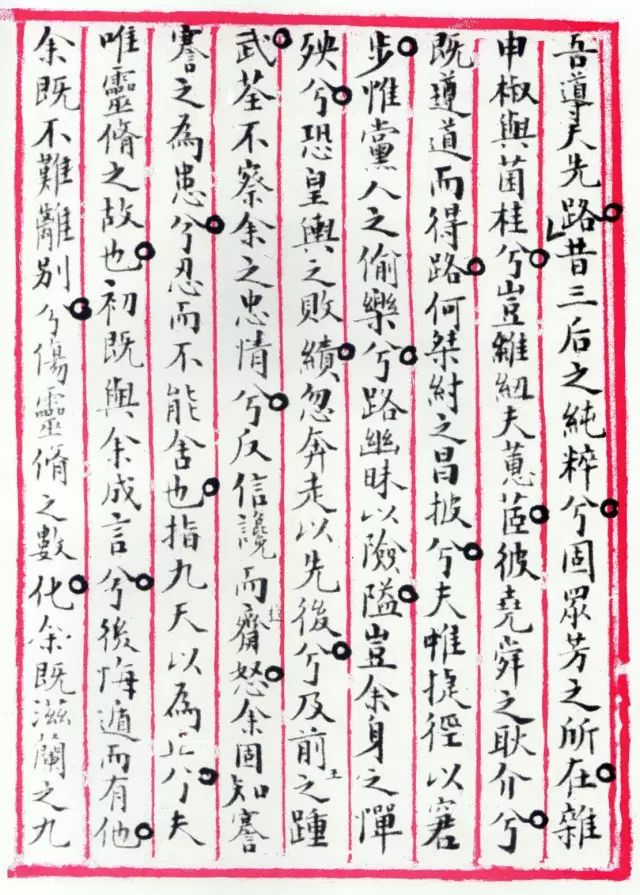 吾導夫先路昔三后之純粹兮固眾芳之所在雜
申椒與菌桂兮豈維紐夫蕙茝彼堯舜之耿介兮
既遵道而得路何桀紂之昌披兮夫惟捷徑以窘
步惟黨人之偷樂兮路幽昧以險隘豈余身之憚
殃兮恐皇輿之敗績忽奔走以先後兮及前王之踵
武荃不察余之忠情兮反信讒而齋怒余固知謇
謇之為患兮忍而不能舍也指九天以為正兮夫
唯靈脩之故也初既與余成言兮後悔遁而有他
余既不難離別兮傷靈脩之數化余既滋蘭之九